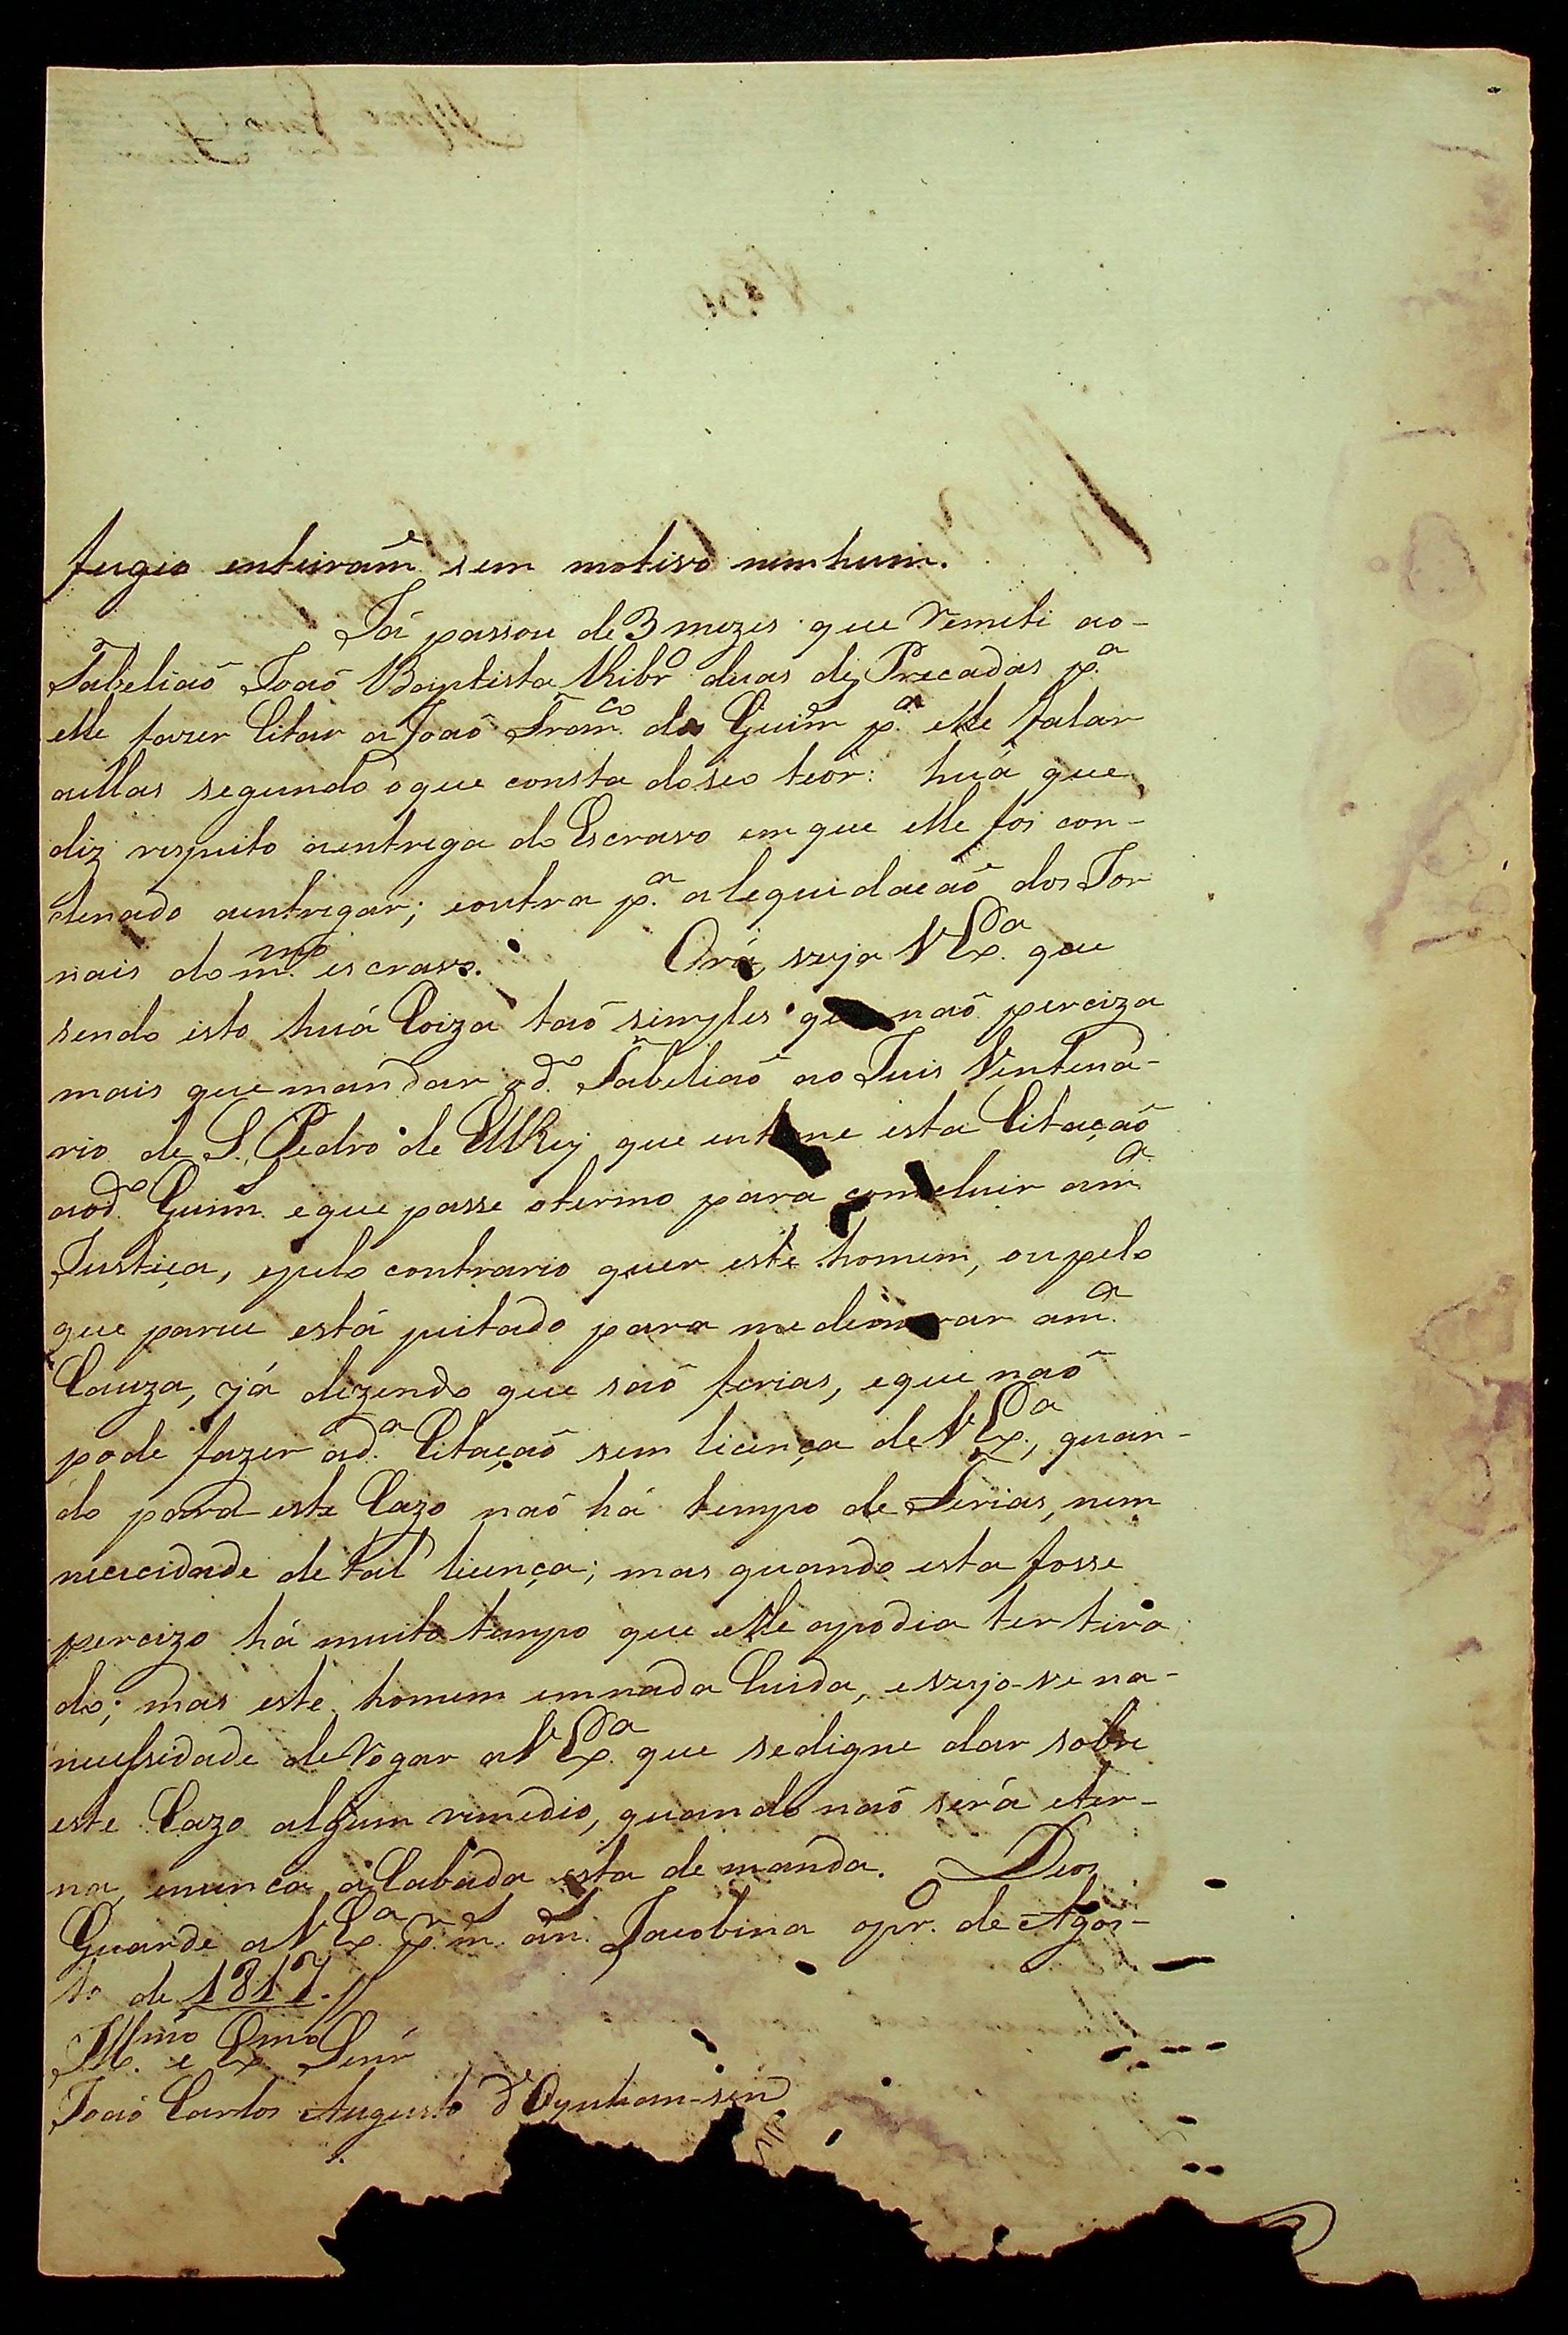 fugio enteiram.e sem motivo nimhum.
Já passou de 3 mezes que remeti ao-
Tabeliaõ Joaõ Baptista Ribr.o duas Precadas p.a
elle fazer Citar a Joaõ Fran.co da Guim p.a elle falar
aellas segundo oque consta doseo teor: huá que
diz respeito aentrega do Escravo em que elle foi con-
denado aentregar; eoutra p.a alequidacaõ dos Jor
nais do m.mo escravo. Orá, veja V Ex.a que
sendo isto huá Coiza taõ simples que naõ perciza
mais que mandar o d.o Tabeliaõ ao Juis Ventena-
rio de S. Pedro de ElRey que entime esta Citaçaõ
aod.o Guim. eque passe otermo para comcluir am.a
Justiça, epelo contrario quer este homem, oupelo
que parece está peitado para medemorar am.a
Cauza, já dezendo que saõ ferias, eque naõ
pode fazer ad.a Citaçaõ sem licença de V Ex.a, quan-
do para este Cazo naõ há tempo de Ferias, nem
nececidade detal licença; mas quando esta fosse
percizo há muito tempo que elle apodia ter tira
do; mas este homem emnada Cuida, evejo-me na-
necessidade derogar a V Ex.a que sedigne dar sobre
este Cazo algum remedio, quando naõ será eter-
na, enunca aCabada esta demanda. Deos
Guarde a V Ex.a p.r m.s an.s Jacobina opr.o de Agos-
to de 1817.
Ill.mo e Ex.mo Senr
Joaõ Carlos Augusto d'Oyenhausen